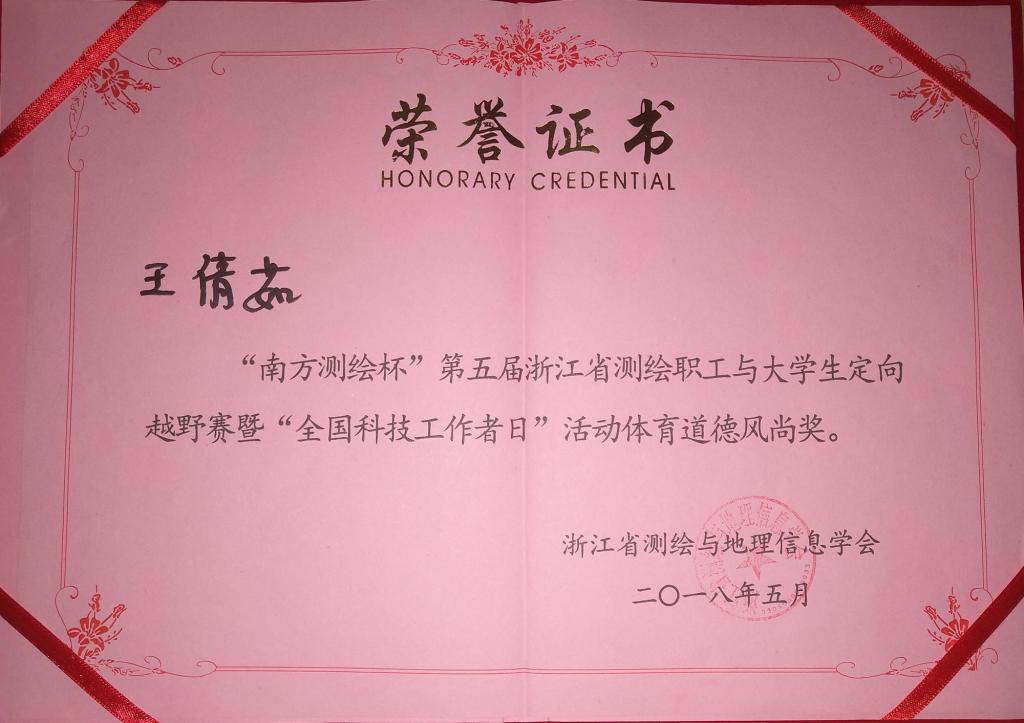 荣誉证书
HONORARY CREDENTIAL
王倩茹
“南方测绘杯”第五届浙江省测绘职工与大学生定向
越野赛暨“全国科技工作者日”活动体育道德风尚奖。
浙江省测绘与地理信息学会
二〇一八年五月